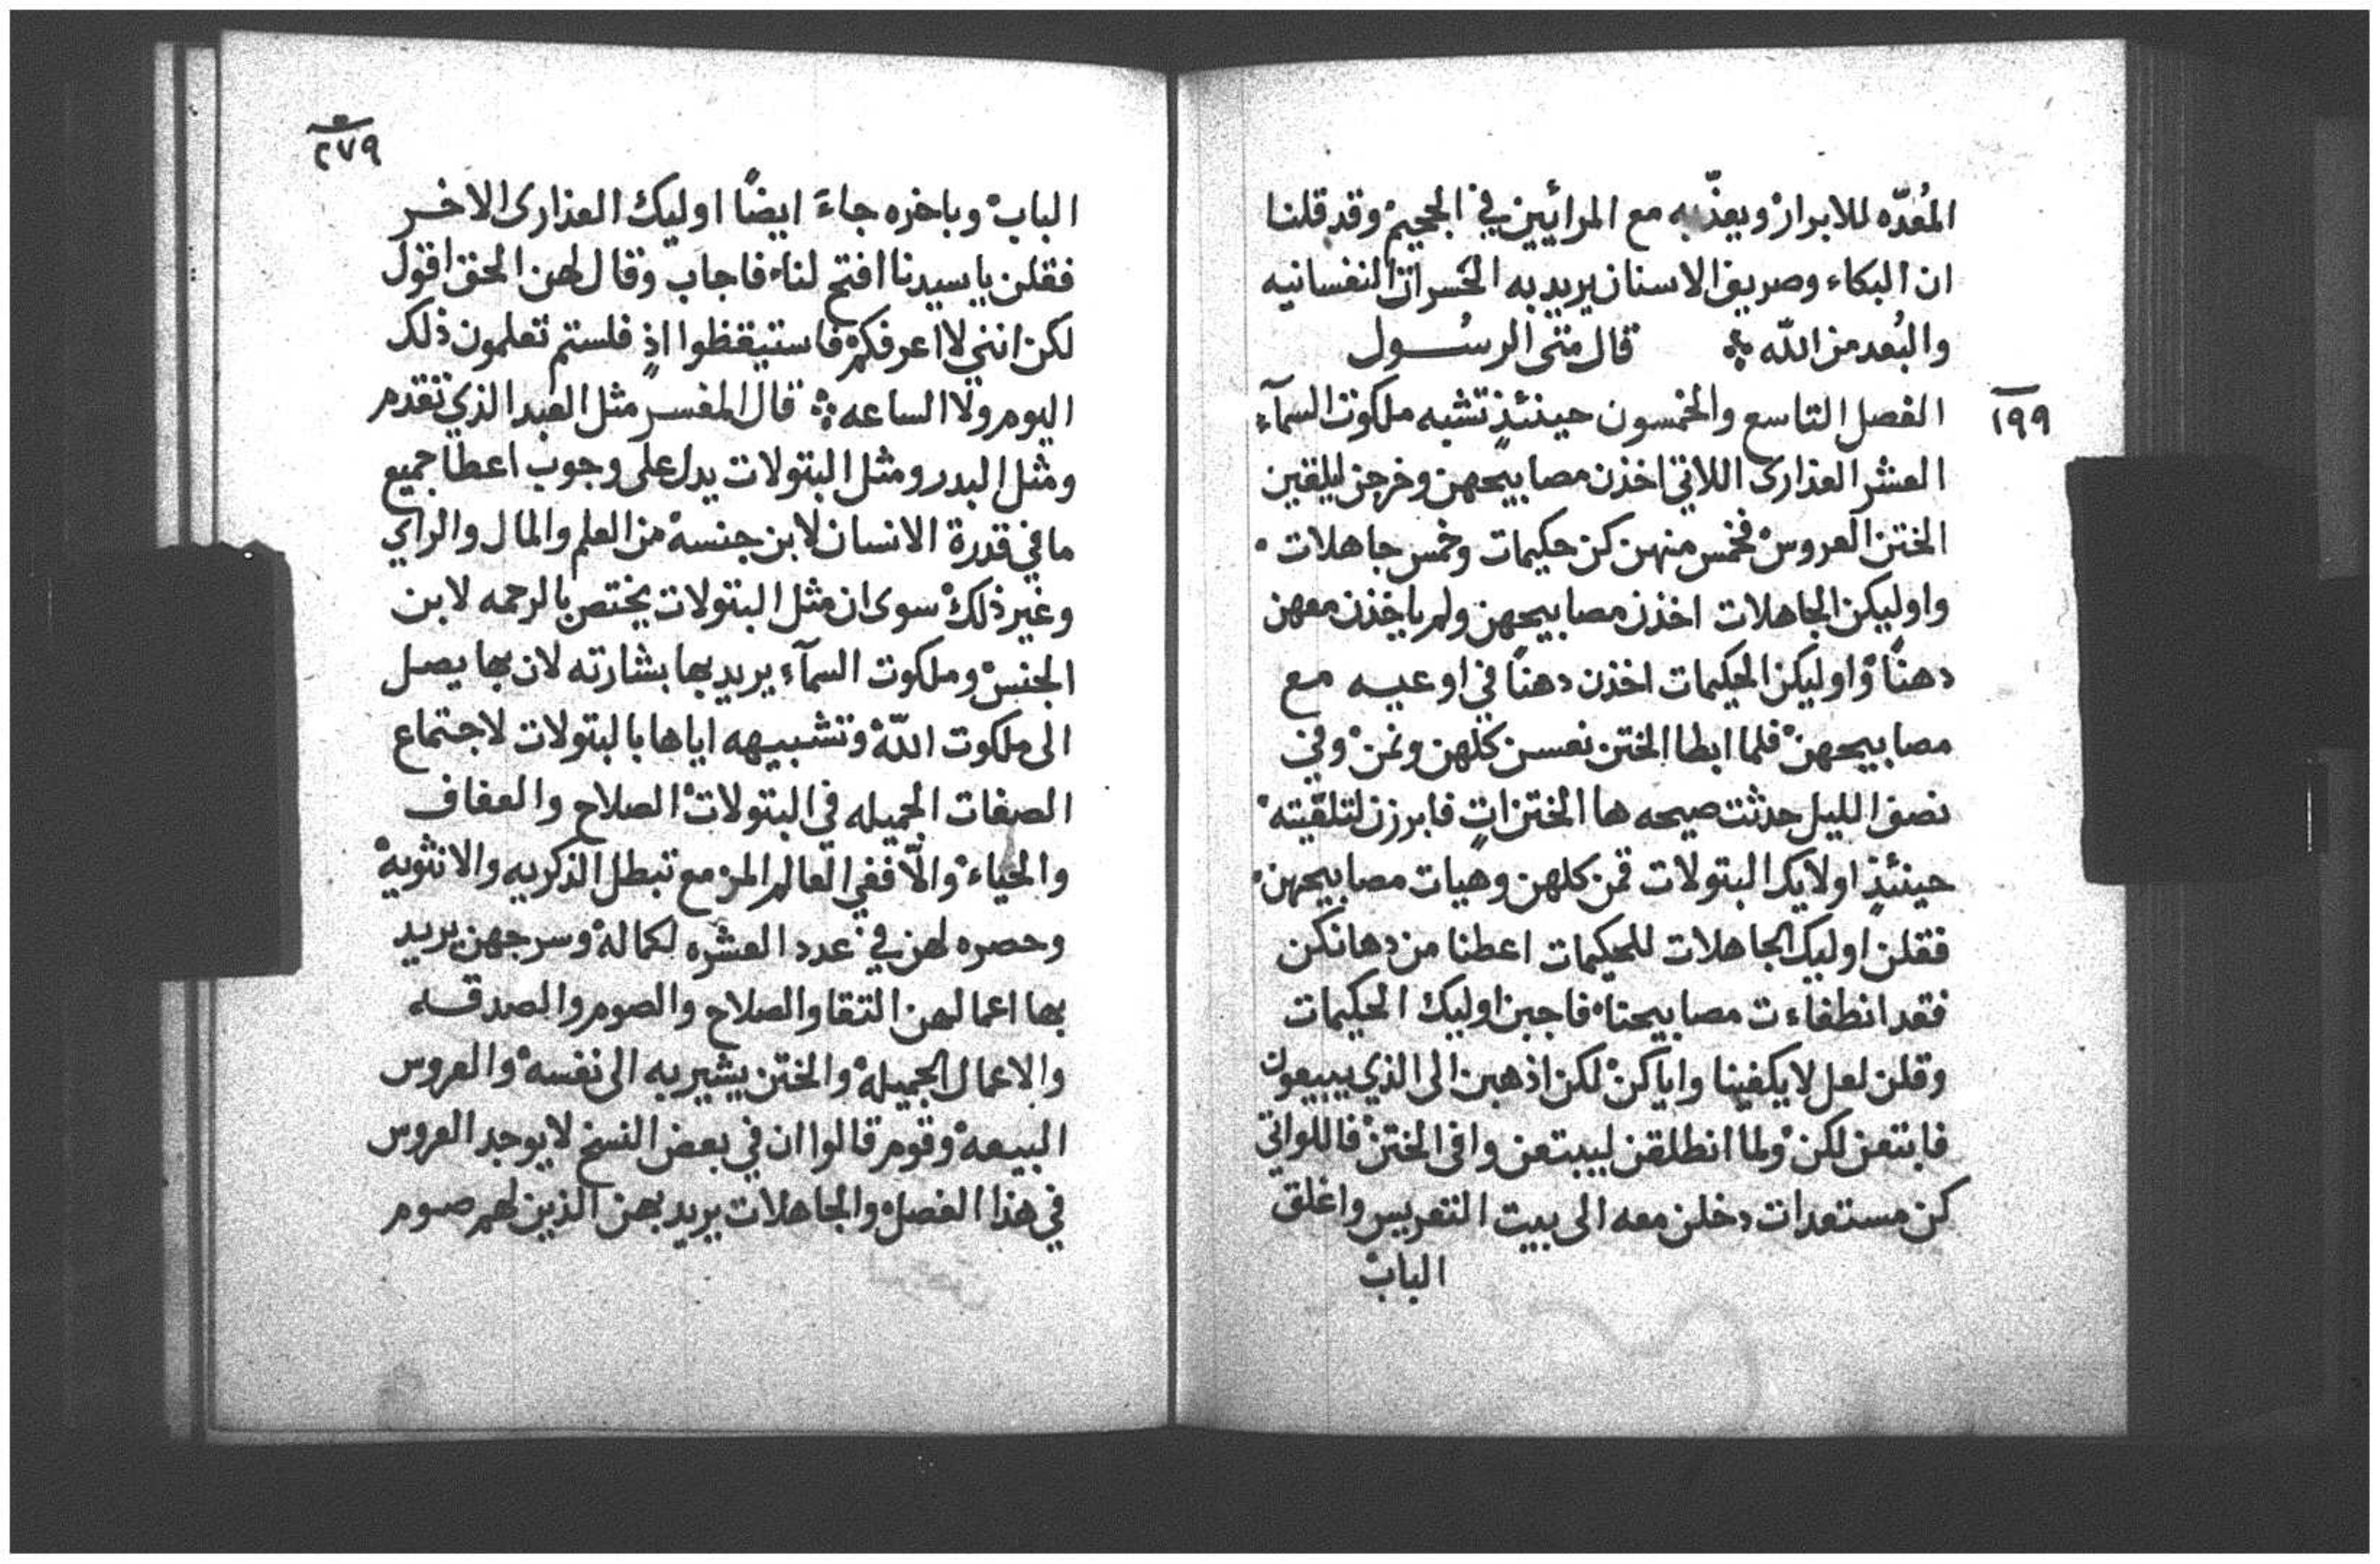 المُعدّه للابرار ويعذّبه مع المرائيين في الجحيم وقد قلنا
ان البكاء وصريف الاسنان يريد به الخسرات النفسانيه
والبُعد من الله ܀ قال متى الرسُول
١٩٩
الفصل التاسع والخمسون حينئذٍ تشبه ملكوت السمآء
العشر العذارى اللاتي اخذن مصابيحهن وخرجن ليلقين
الختن العروس فخمس منهن كن حكيمات وخمس جاهلات
واوليكن الجاهلات اخذن مصابيحهن ولم ياخذن معهن
دهنًا واوليكن الحكيمات اخذن دهنًا في اوعيه مع
مصابيحهن فلما ابطا الختن نعسن كلهن ونمن وفي
نصف الليل حدثت صيحه ها الختن اتٍ فابرزن لتلقيته
حينئذٍ اولايك البتولات قمن كلهن وهيات مصابيحهن
فقلن اوليك الجاهلات للحكيمات اعطنا من دهانكن
فقد انطفاءت مصابيحنا فاجبن اوليك الحكيمات
وقلن لعل لا يكفينا واياكن لكن اذهبن الى الذي يبيعون
فابتعن لكن ولما انطلقن ليبتعن وافى الختن فاللواتي
كن مستعدات دخلن معه الى بيت التعريس واغلق
الباب
٢٧٩
الباب وباخره جاءَ ايضًا اوليك العذارى الاخر
فقلن يا سيدنا افتح لنا فاجاب وقال لهن الحق اقول
لكن انني لا اعرفكم فاستيقظوا اذٍ فلستم تعلمون ذلك
اليوم ولا الساعه ܀ قال المفسر مثل العبد الذي تقدم
ومثل البدر ومثل البتولات يدل على وجوب اعطا جميع
ما في قدرة الانسان لابن جنسه من العلم والمال والراي
وغير ذلك سوى ان مثل البتولات يختص بالرحمه لابن
الجنس وملكوت السمآء يريد بها بشارته لان بها يصل
الى ملكوت الله وتشبيهه اياها بالبتولات لاجتماع
الصفات الجميله في البتولات الصلاح والعفاف
والحياء والّا ففي العالم المزمع تبطل الذكريه والانثويه
وحصره لهن في عدد العشره لكماله وسرجهن يريد
بها اعمالهن التقا والصلاح والصوم والصدقه
والاعمال الجميله والختن يشير به الى نفسه والعروس
البيعه وقوم قالوا ان في بعض النسخ لا يوجد العروس
في هذا الفصل والجاهلات يريد بهن الذين لهم صوم